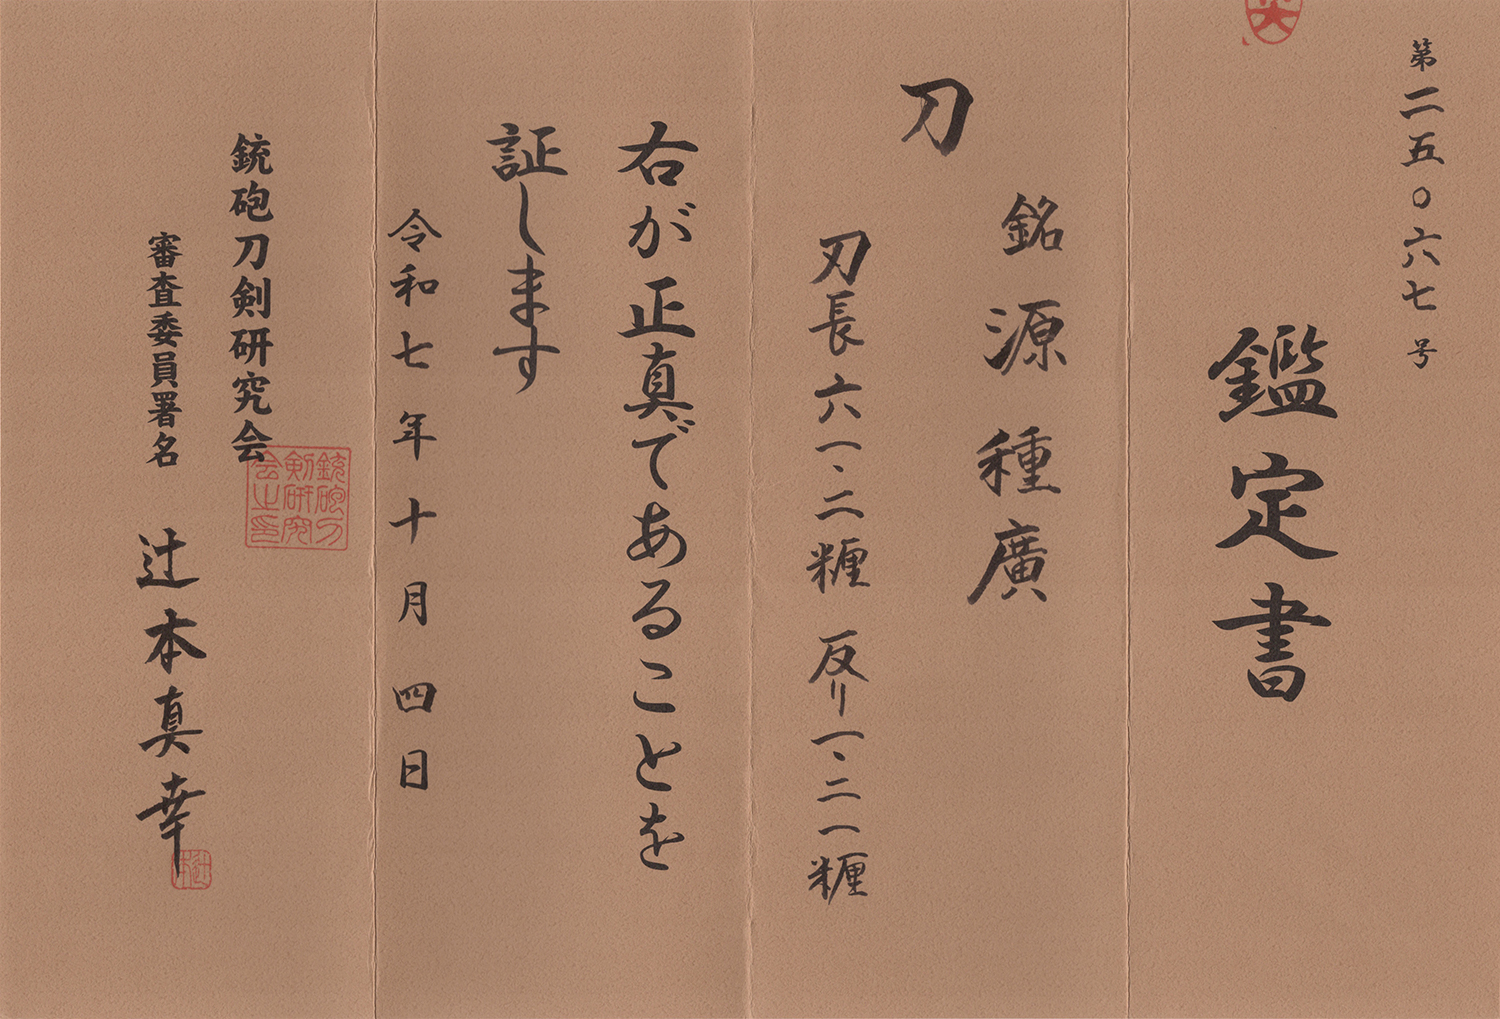 第二五〇六七号
鑑定書
刀
銘源種廣
刃長六一、二糎 反リ一、二一糎
右が正真であることを
証します
令和七年十月四日
銃砲刀剣研究会
審査委員署名 辻本真幸
銃砲刀
剣研究
会之印
辻本